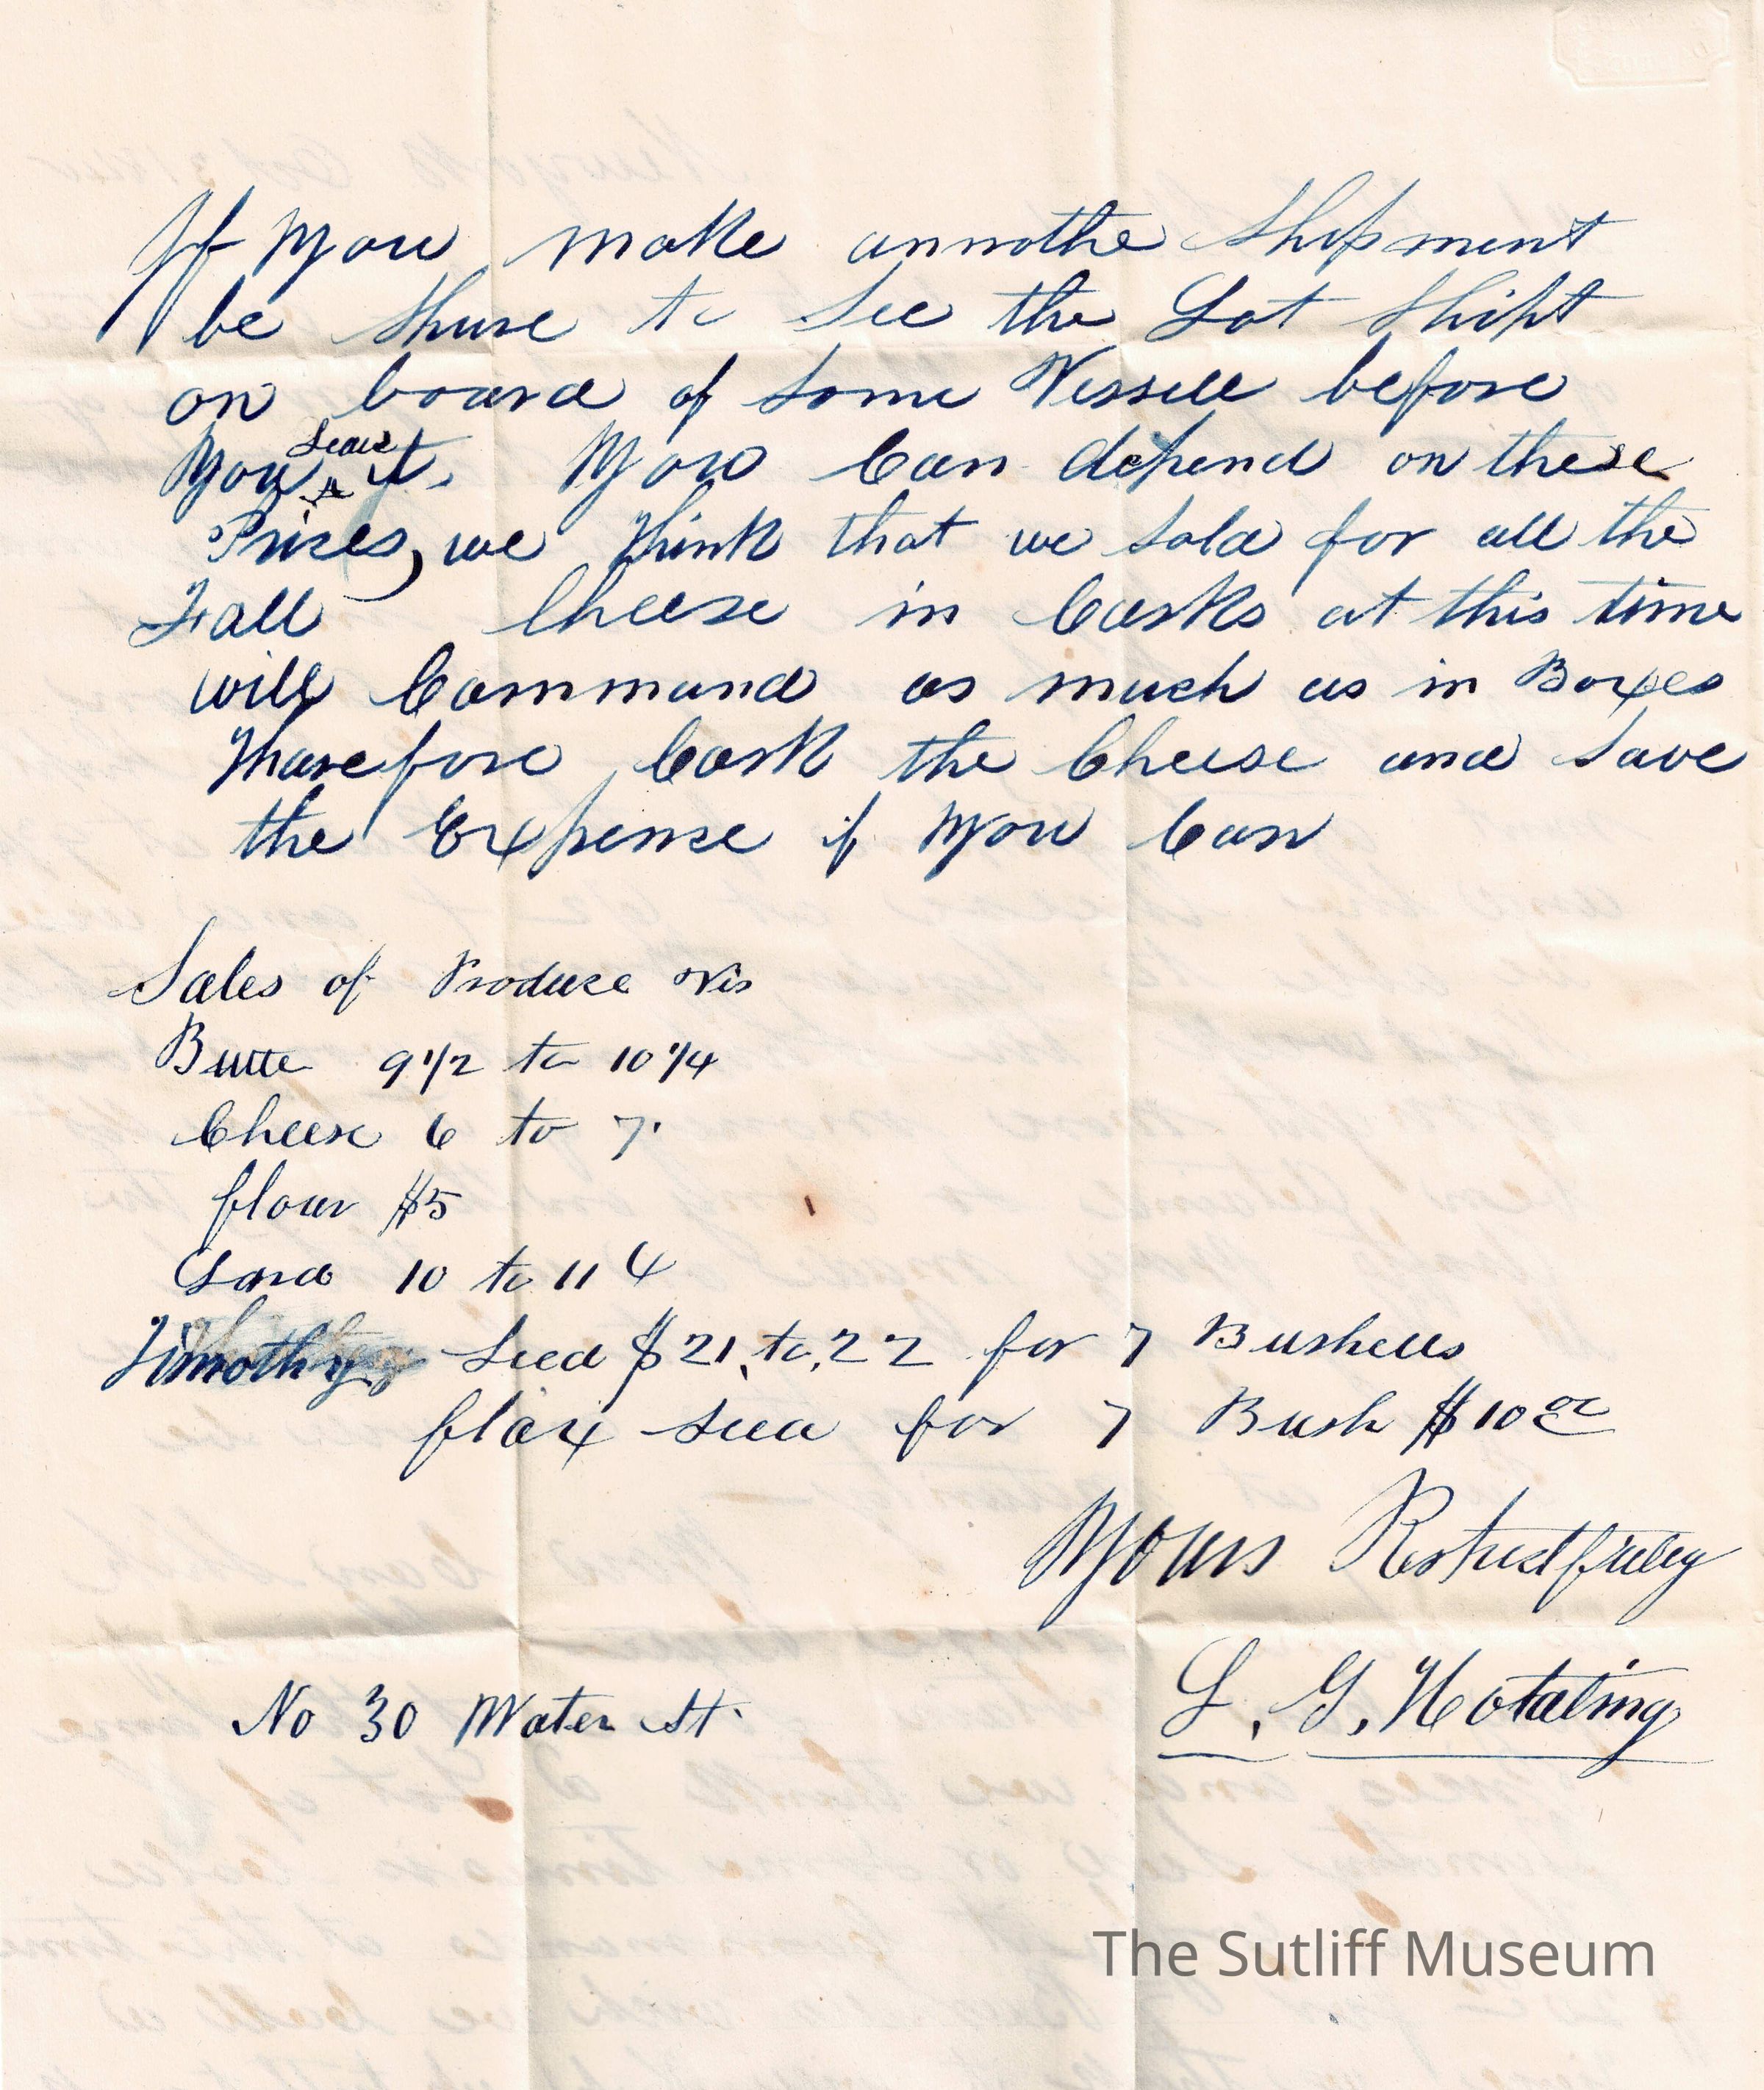 If You make annothe Shipment
be Shure to See the Lot Shipt
on board of some Vessell before
You Leave it. You Can depend on these
Prises, we Think that we sold for all the
Fall Cheese in Casks at this time
will Command as much as in Boxes
Tharefore Cask the Cheese and Save
the Expense if You Can
Sales of Produce Vis
Butte 9 1/2 to 10 1/4
Cheese 6 to 7.
flour $5
Lard 10 to 11 ¢
Timothy Seed $21, to, 22 for 7 Bushells
flax seed for 7 Bush $10 00
Yours Respectfully
L. G. Hotaling
No 30 Water St.
The Sutliff Museum